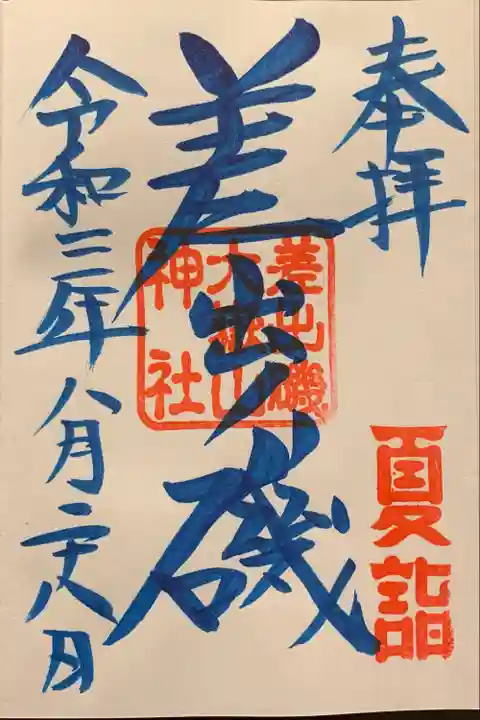 奉拝
夏詣
差出ノ磯
差出磯
大嶽山
神社
令和三年八月二十八日